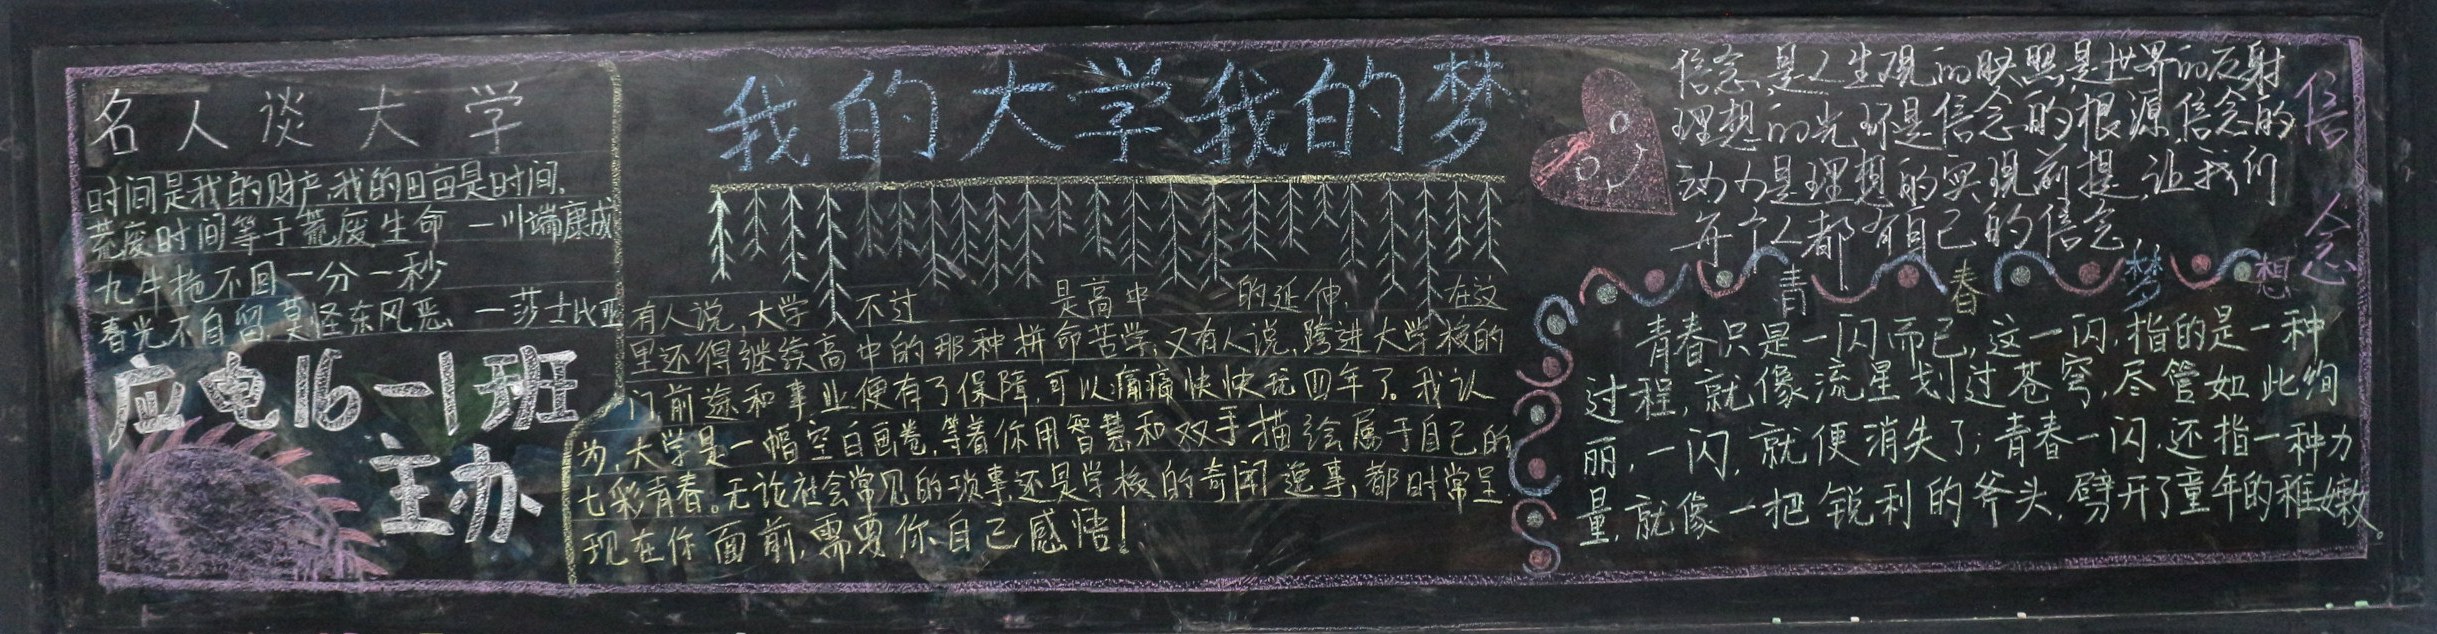 名人谈大学
时间是我的财产,我的田亩是时间.
荒废时间等于荒废生命 —川端康成
九牛拖不回一分一秒
春光不自留,莫怪东风恶 —莎士比亚
应电16-1班
主办
我的大学我的梦
有人说,大学不过是高中的延伸,在这
里还得继续高中的那种拼命苦学,又有人说,跨进大学校的
门,前途和事业便有了保障,可以痛痛快快玩四年了。我认
为,大学是一幅空白画卷,等着你用智慧和双手描绘属于自己的
七彩青春。无论社会常见的琐事,还是学校的奇闻逸事,都时常呈
现在你面前,需要你自己感悟!
信念
信念,是人生观的映照,是世界的反射
理想的光环是信念的根源,信念的
动力是理想的实现前提,让我们
每个人都有自己的信念
青春梦想
青春只是一闪而已,这一闪,指的是一种
过程,就像流星划过苍穹,尽管如此绚
丽,一闪,就便消失了;青春一闪,还指一种力
量,就像一把锐利的斧头,劈开了童年的稚嫩。